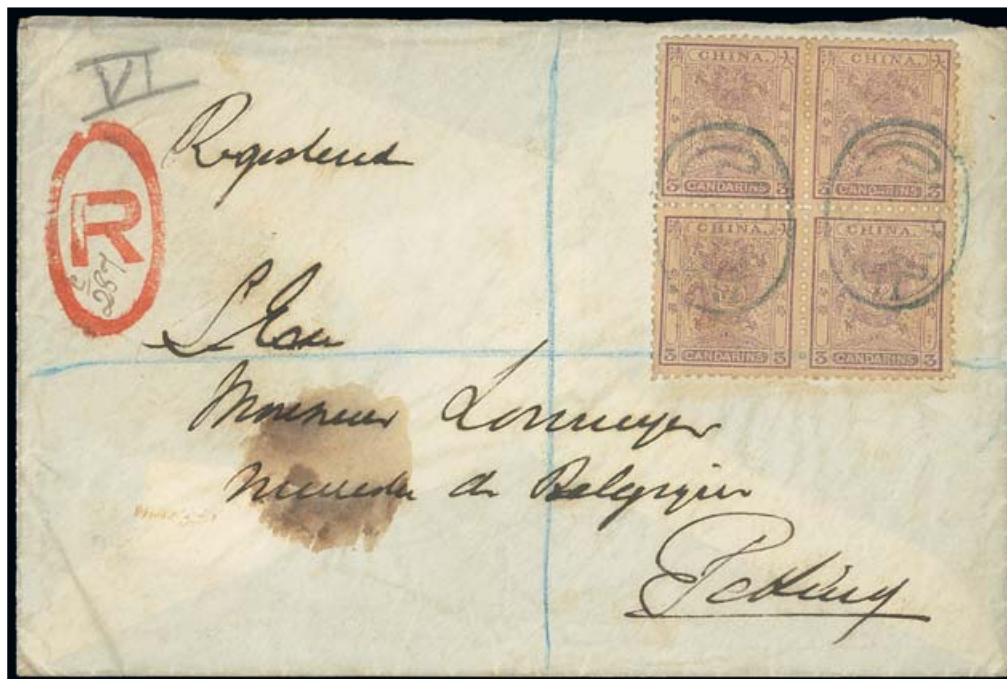 VI
Registered
R
287
S. Exce
Monsieur Loumyer
Ministre de Belgique
Peking
清 CHINA. 大
3 CANDARINS 3
清 CHINA. 大
3 CANDARINS 3
清 CHINA. 大
3 CANDARINS 3
清 CHINA. 大
3 CANDARINS 3